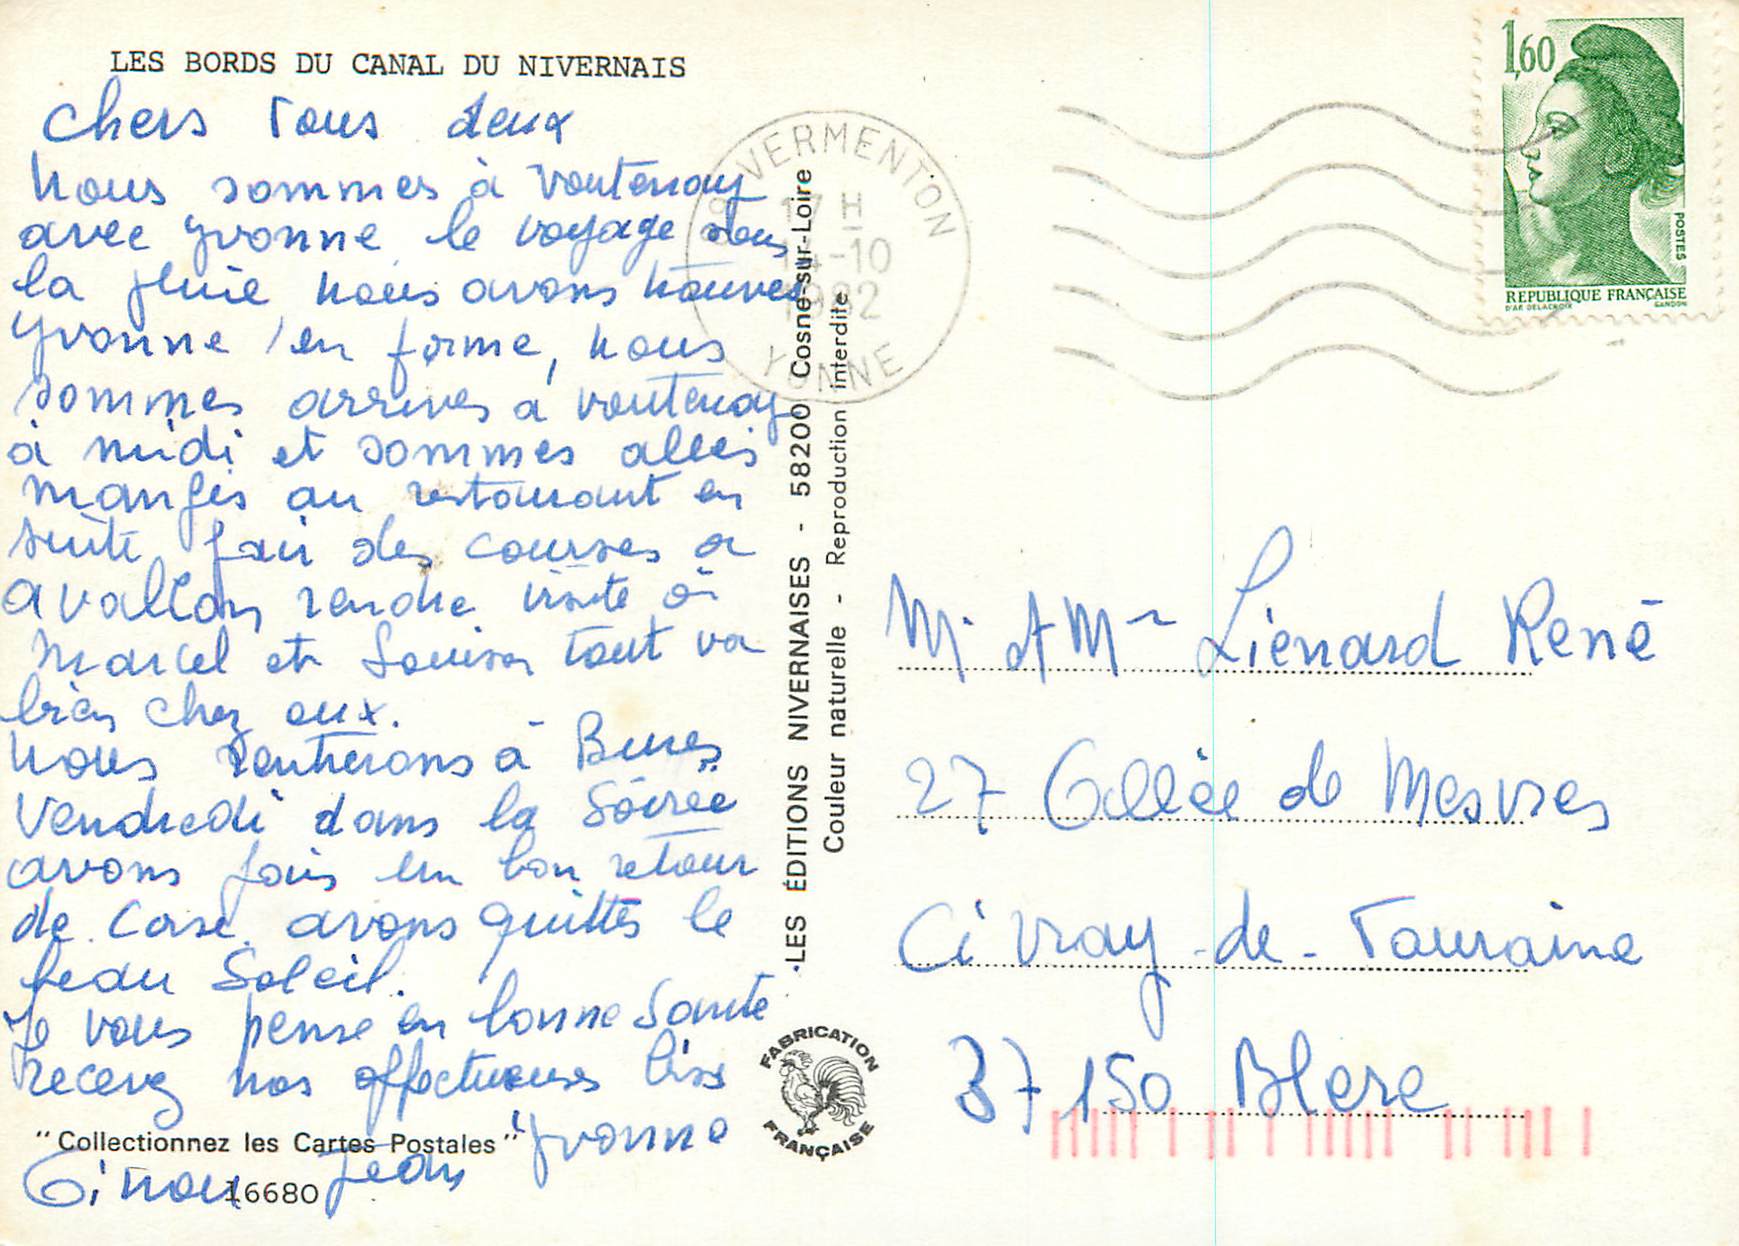 LES BORDS DU CANAL DU NIVERNAIS
Chers Tous deux
Nous sommes à Voutenay
avec Yvonne le voyage sous
la pluie nous avons trouves
Yvonne en forme, nous
sommes arrives a voutenay
à midi et sommes allés
manges au restaurant en
suite fair des courses a
avallon rendre visite à
Marcel et Louison tout va
bien chez eux.
Nous rentrerons à Bures
Vendredi dans la Soirée
avons fais un bon retour
de Corse. avons quittés le
beau Soleil.
Je vous pense en bonne Santé
recevez nos affectueuses bises
Yvonne
Ginou Jean
"Collectionnez les Cartes Postales"
16680
VERMENTON
17 H
14-10
1982
YONNE
LES ÉDITIONS NIVERNAISES - 58200 Cosne-sur-Loire
Couleur naturelle - Reproduction interdite
FABRICATION
FRANÇAISE
1,60
POSTES
REPUBLIQUE FRANÇAISE
D'AP. DELACROIX GANDON
Mr & Mme Lienard René
27 Allée de Mesvres
Civray-de-Touraine
37150 Blere